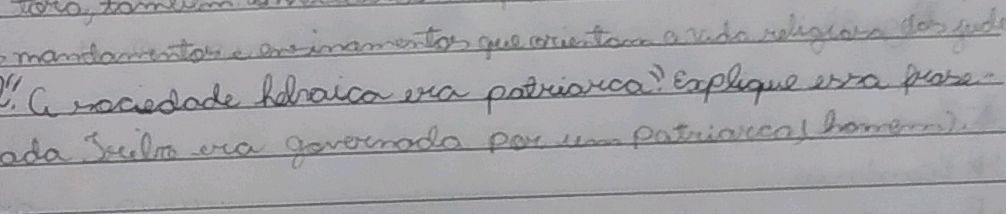 mandamentos e ensinamentos que orientam a vida religiosa dos
"A sociedade hebraica era patriarca" Explique essa frase.
ada era governada por um patriarca (homem).